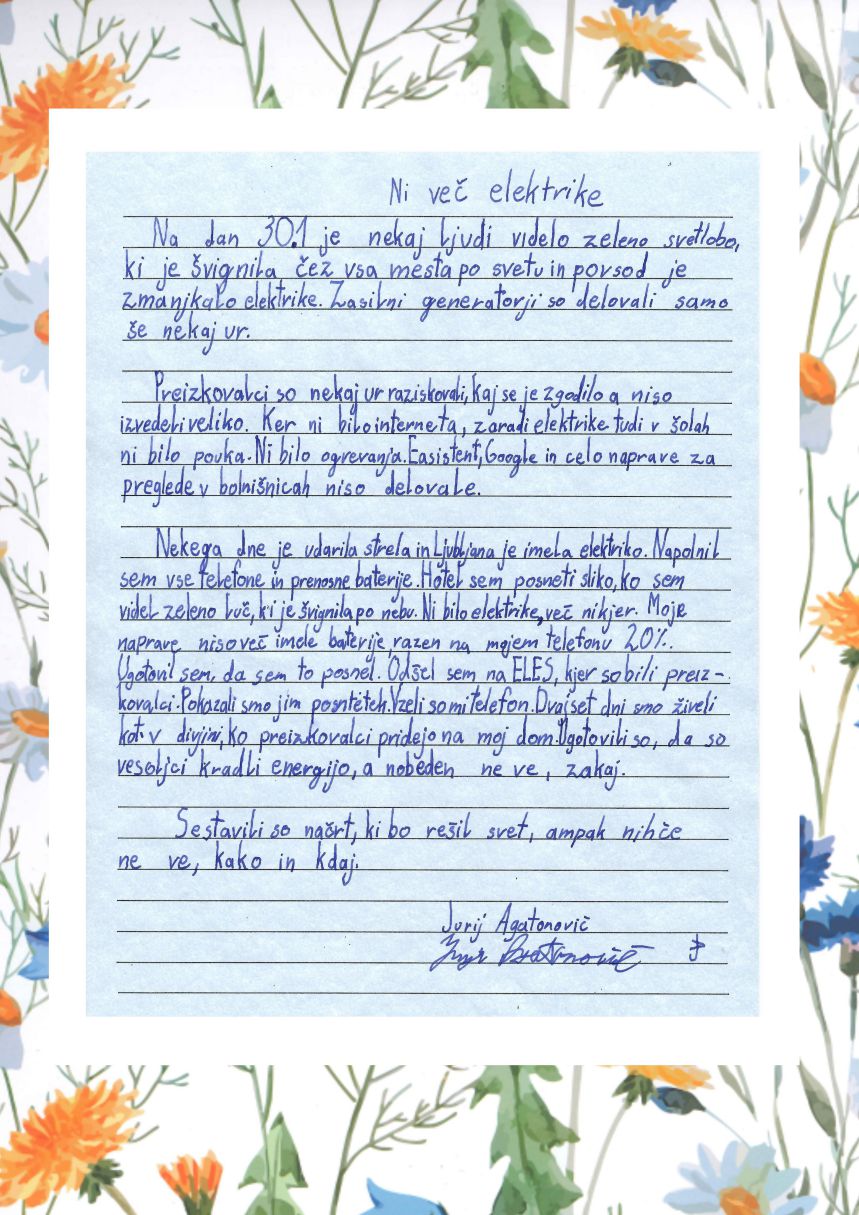 Ni več elektrike
Na dan 30.1 je nekaj ljudi videlo zeleno svetlobo,
ki je švignila čez vsa mesta po svetu in povsod je
zmanjkalo elektrike. Zasilni generatorji so delovali samo
še nekaj ur.
Preizkovalci so nekaj ur raziskovali, kaj se je zgodilo a niso
izvedeli veliko. Ker ni bilo interneta, zaradi elektrike tudi v šolah
ni bilo pouka. Ni bilo ogrevanja. Easistent, Google in celo naprave za
preglede v bolnišnicah niso delovale.
Nekega dne je udarila strela in Ljubljana je imela elektriko. Napolnil
sem vse telefone in prenosne baterije. Hotel sem posneti sliko, ko sem
videl zeleno luč, ki je švignila po nebu. Ni bilo elektrike, več nikjer. Moje
naprave niso več imele baterije, razen na mojem telefonu 20%.
Ugotovil sem, da sem to posnel. Odšel sem na ELES, kjer so bili preiz-
kovalci. Pokazali smo jim posntetek. Vzeli so mi telefon. Dvajset dni smo živeli
kot v divjini, ko preizkovalci pridejo na moj dom. Ugotovili so, da so
vesoljci kradli energijo, a nobeden ne ve, zakaj.
Sestavili so načrt, ki bo rešil svet, ampak nihče
ne ve, kako in kdaj.
Jurij Agatonovič